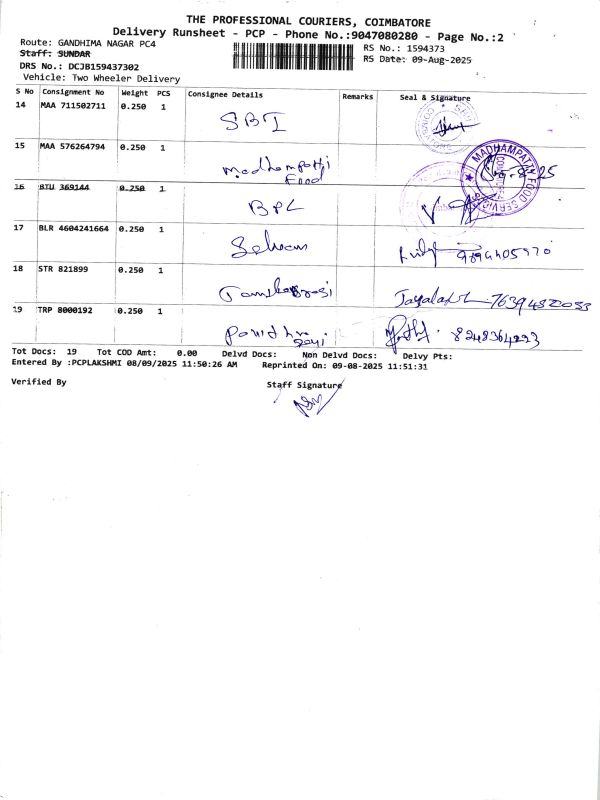 THE PROFESSIONAL COURIERS, COIMBATORE
Delivery Runsheet - PCP - Phone No.:9047080280 - Page No.:2
Route: GANDHIMA NAGAR PC4
RS No.: 1594373
Staff: SUNDAR
RS Date: 09-Aug-2025
DRS No.: DCJB159437302
Vehicle: Two Wheeler Delivery
S No Consignment No Weight PCS Consignee Details Remarks Seal & Signature
14 MAA 711502711 0.250 1 SBI
15 MAA 576264794 0.250 1 Madhampatti Food
MADHAMPATTY FOOD SERVICE
16 BTU 369144 0.250 1 BPL
17 BLR 4604241664 0.250 1 Selvam
18 STR 821899 0.250 1
19 TRP 8000192 0.250 1
Tot Docs: 19 Tot COD Amt: 0.00 Delvd Docs: Non Delvd Docs: Delvy Pts:
Entered By :PCPLAKSHMI 08/09/2025 11:50:26 AM Reprinted On: 09-08-2025 11:51:31
Verified By Staff Signature